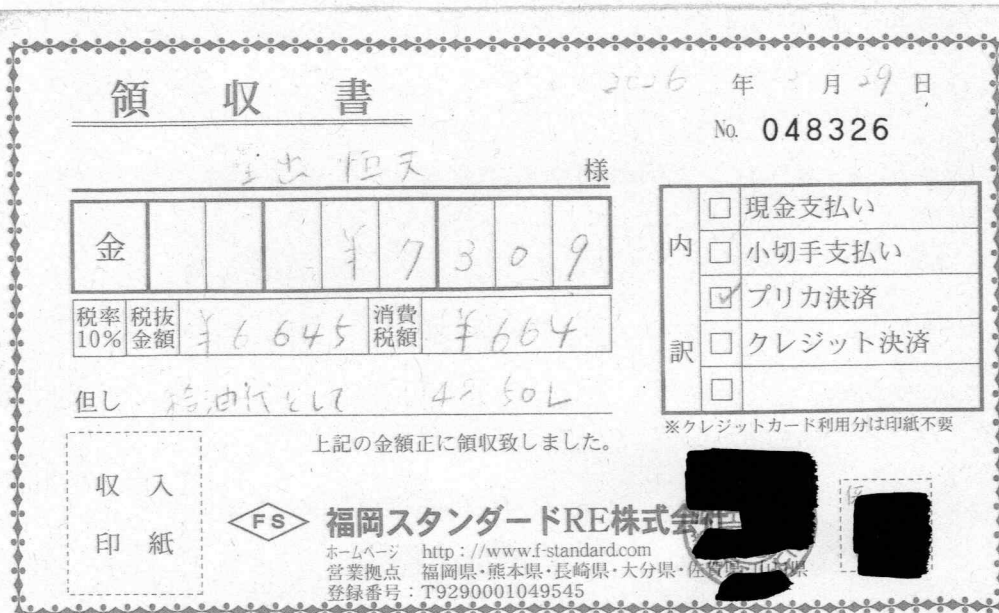 領収書
2026年 月29日
No. 048326
様
金 ¥7309
税率10% 税抜金額 ¥6645 消費税額 ¥664
但し 給油代として 42.50L
上記の金額正に領収致しました。
内訳
現金支払い
小切手支払い
✓プリカ決済
クレジット決済
※クレジットカード利用分は印紙不要
収入
印紙
FS 福岡スタンダードRE株式会社
ホームページ http://www.f-standard.com
営業拠点 福岡県・熊本県・長崎県・大分県・佐賀県・山口県
登録番号:T9290001049545
係